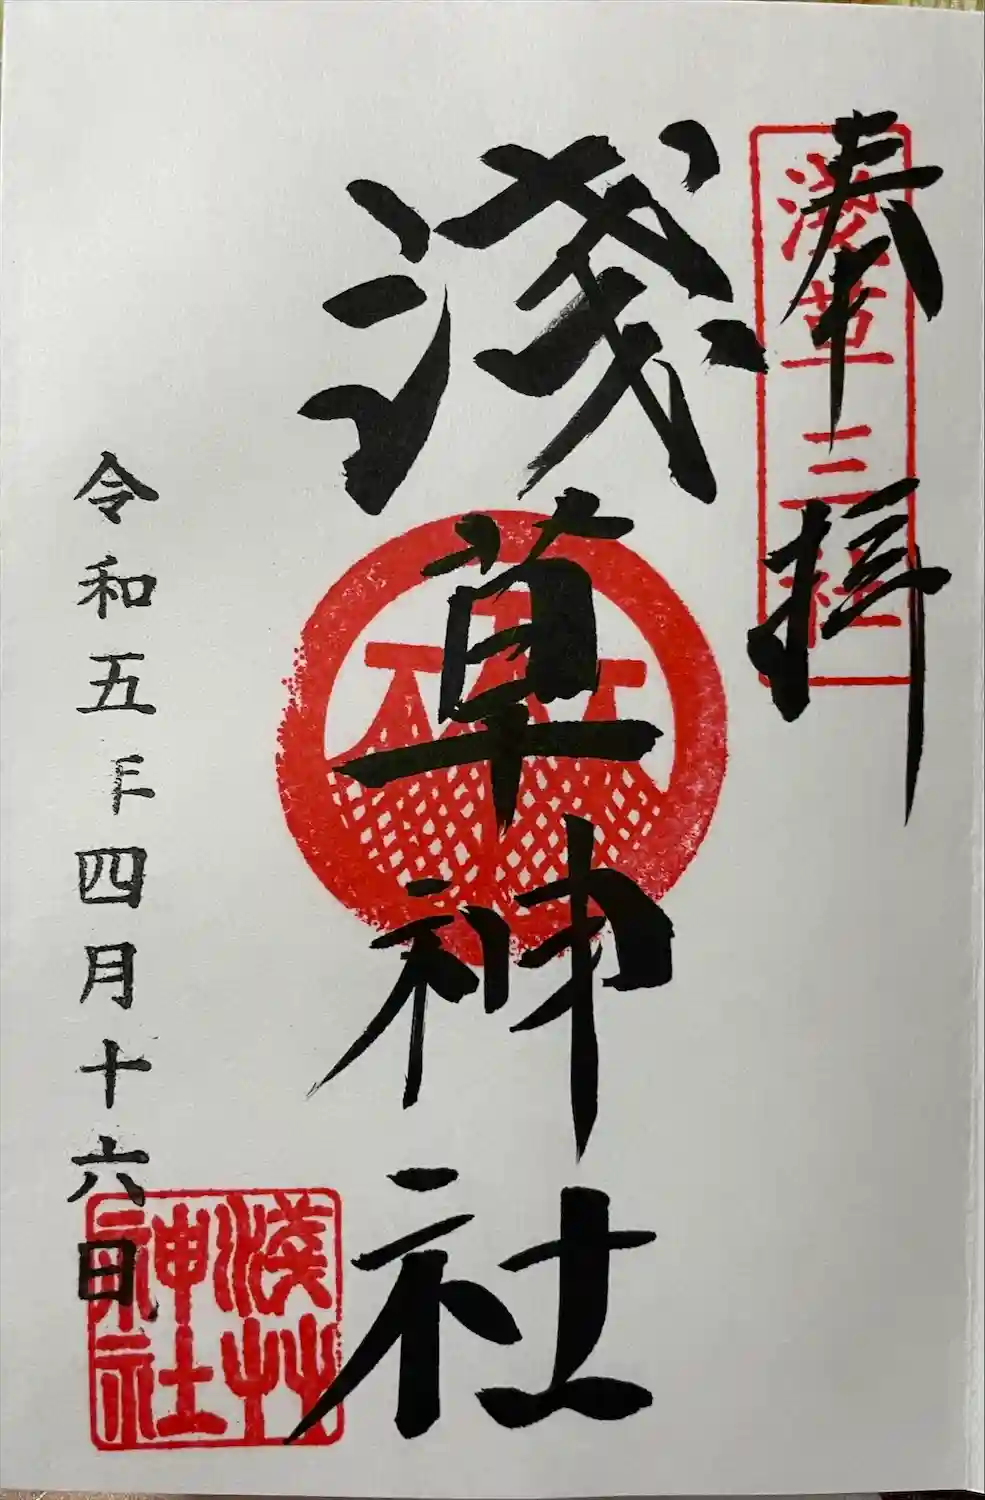 奉拝
淺草三社
淺草神社
令和五年四月十六日
淺艸
神社